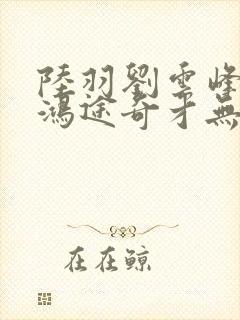 陸羽劉雲峰
鴻途奇才無
在在鯨